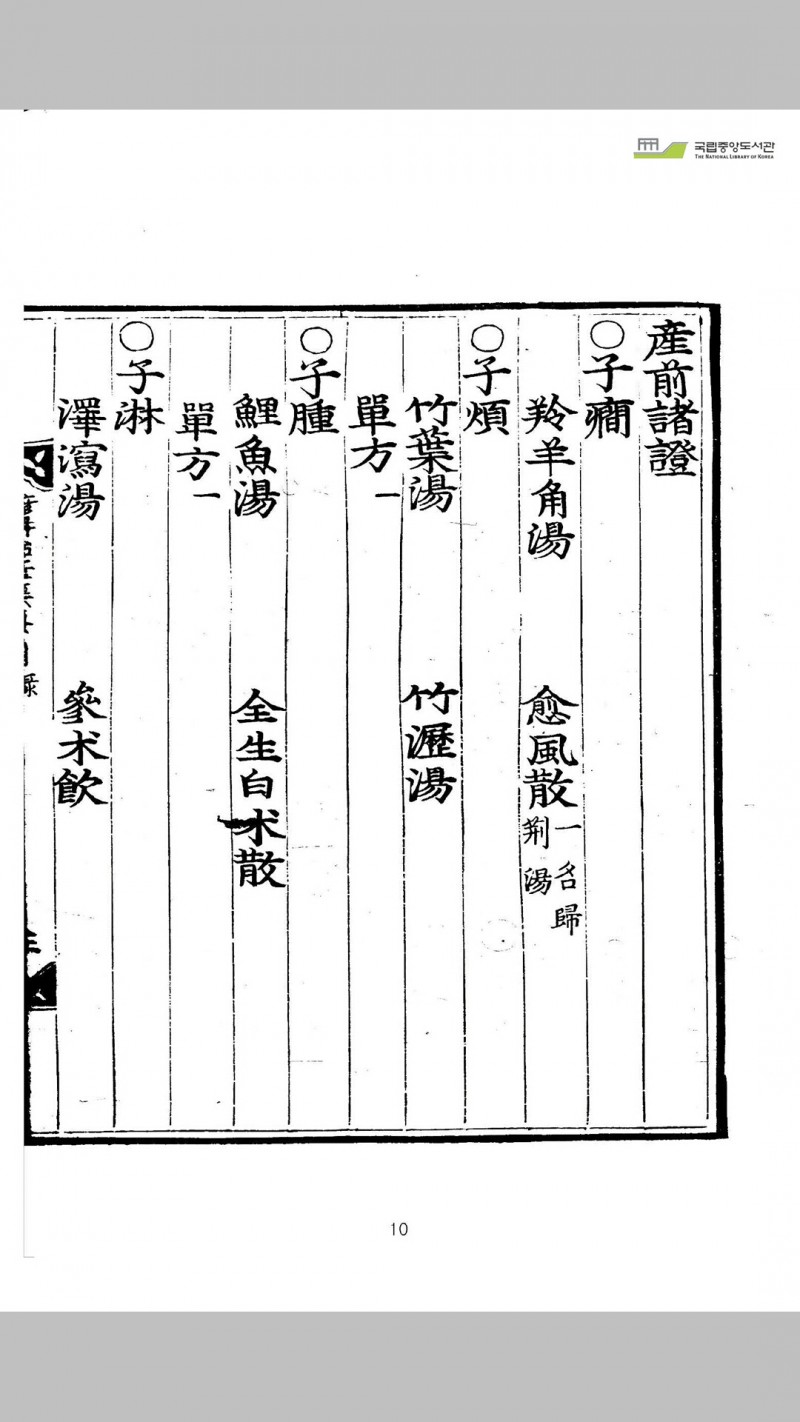 국립중앙도서관
THE NATIONAL LIBRARY OF KOREA
産前諸證
○子癎
羚羊角湯 愈風散 一名歸荊湯
○子煩
竹葉湯 竹瀝湯
單方一
○子腫
鯉魚湯 全生白术散
單方一
○子淋
澤瀉湯 參术飮
10